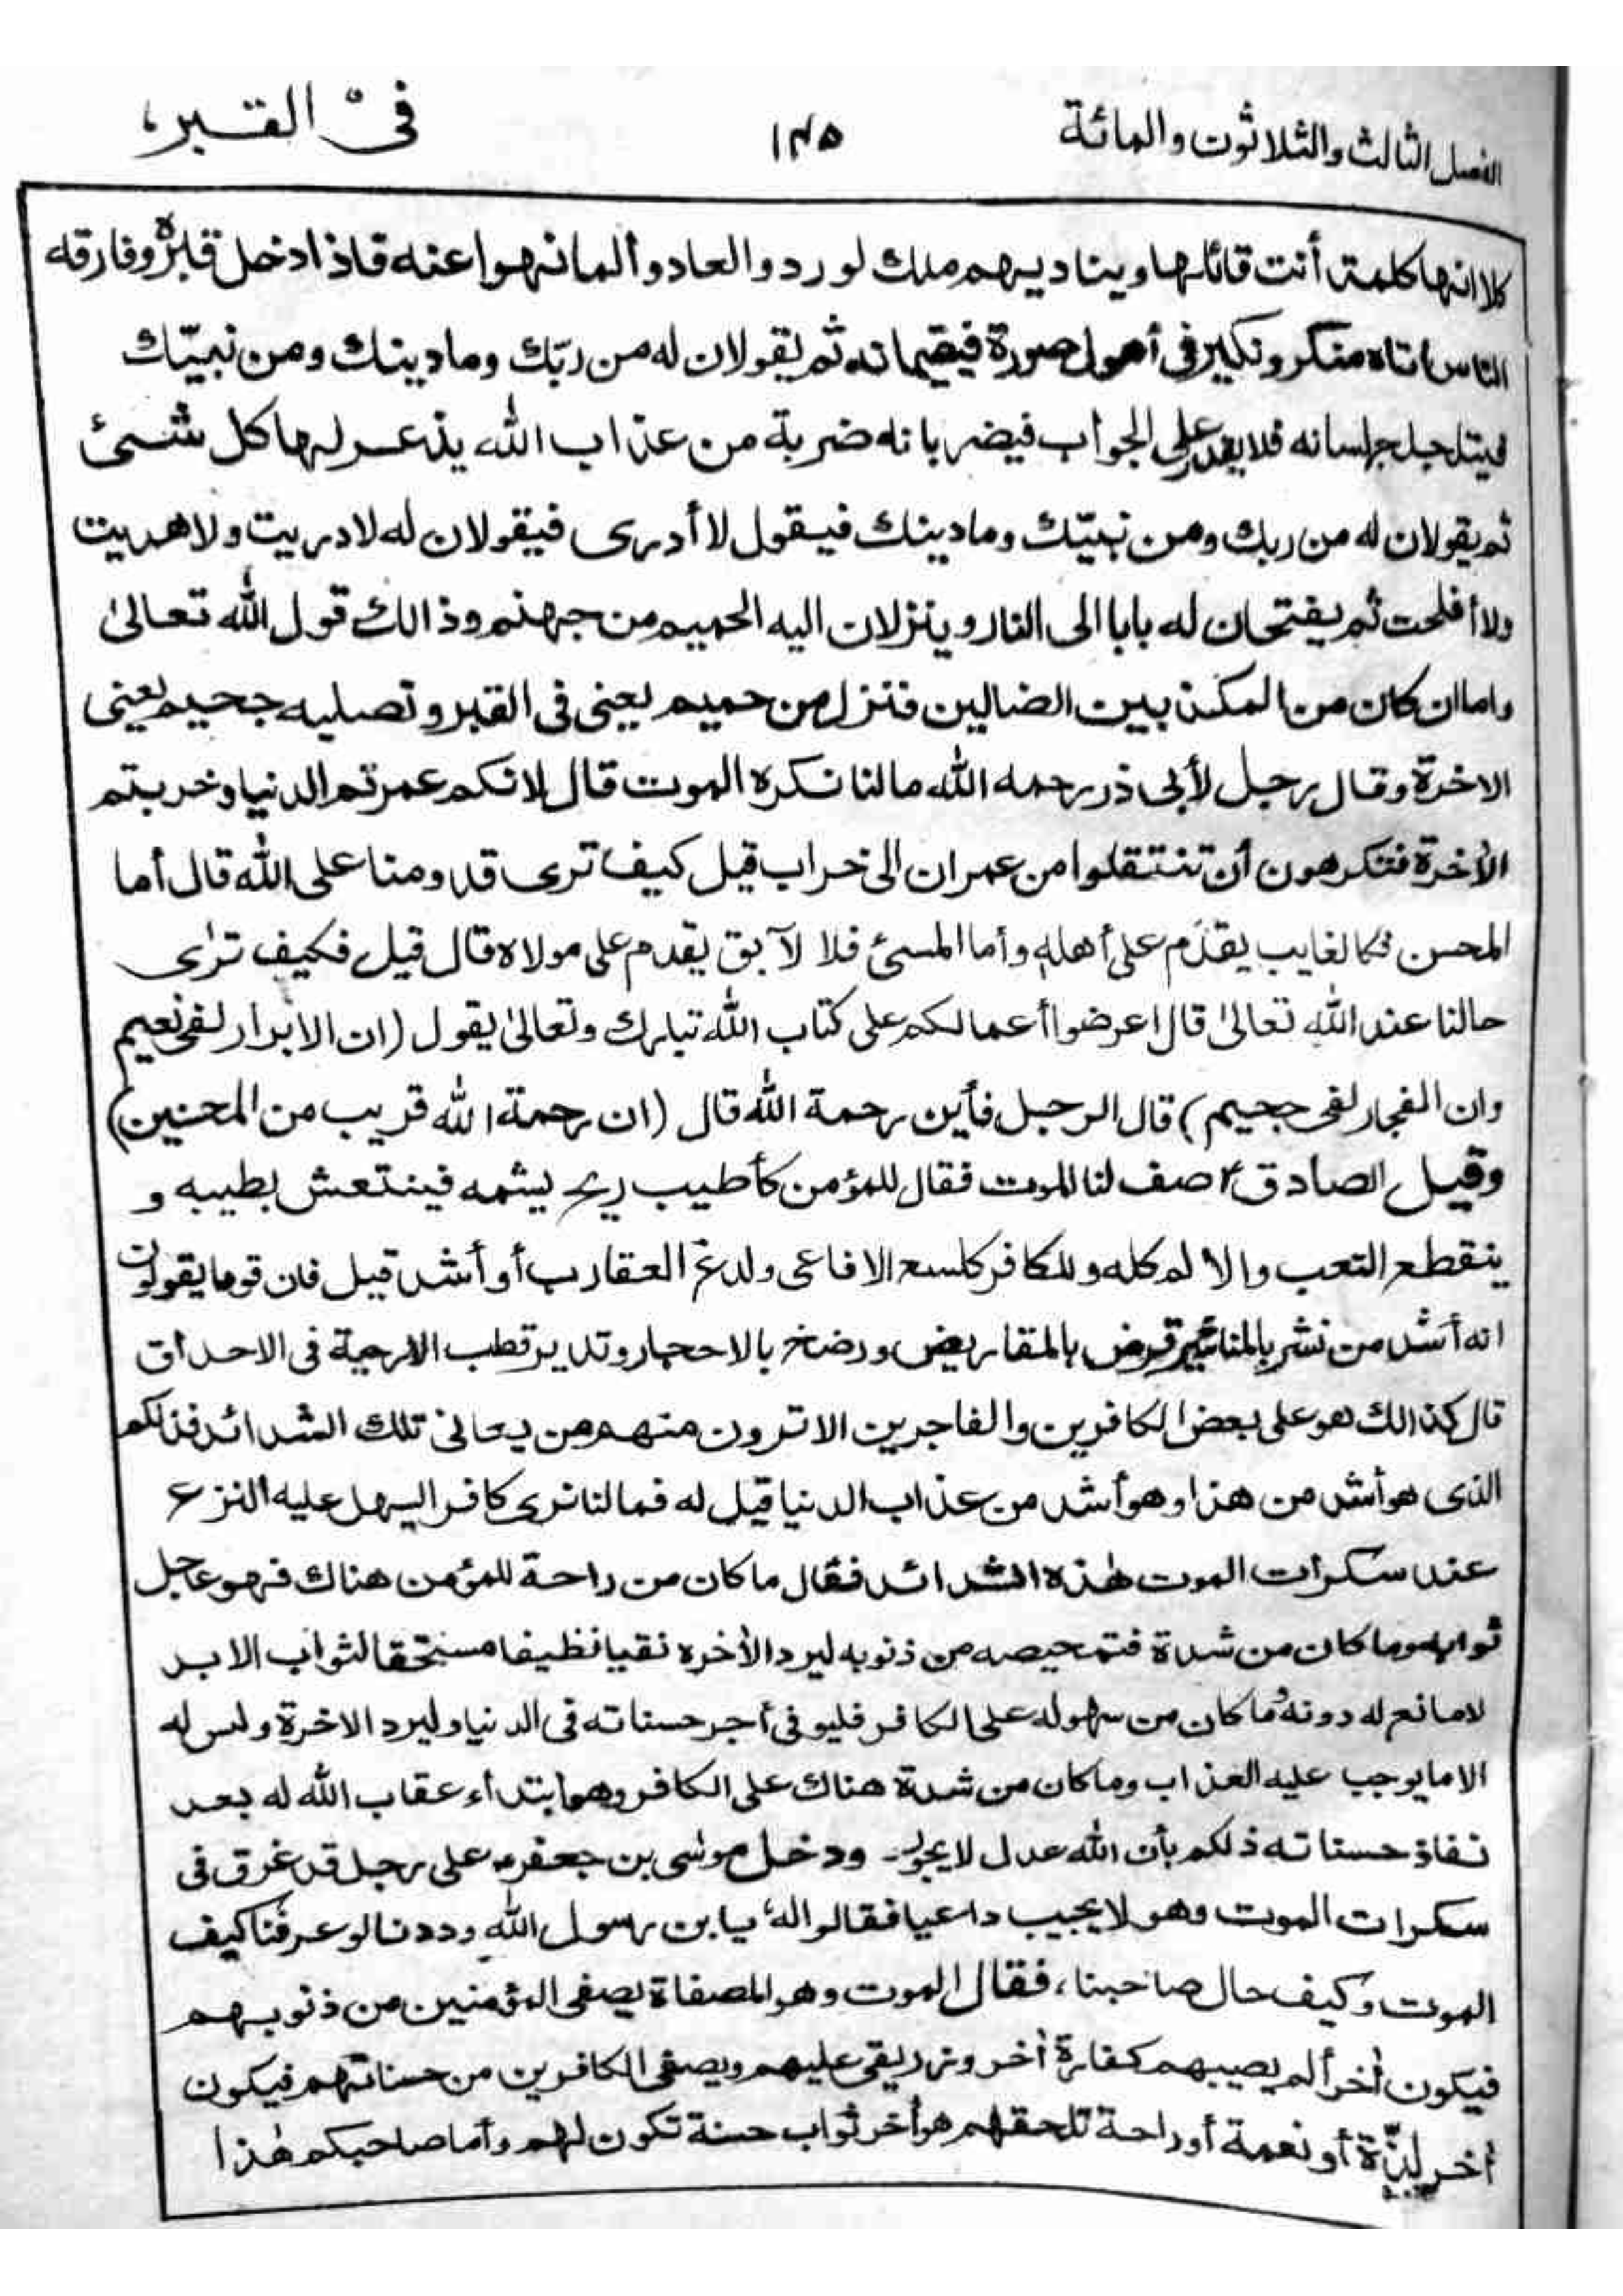 الفصل الثالث والثلاثون والمائة ١٣٥ فى القبر،
كلا انها كلمة أنت قائلها ويناديهم ملك لو ردوا لعادوا لما نهوا عنه فاذا ادخل قبره وفارقه
الناس اتاه منكر ونكير فى أهول صورة فيقيمانه ثم يقولان له من ربّك وما دينك ومن نبيّك
فيتلجلج لسانه فلا يقدر على الجواب فيضربانه ضربة من عذاب الله يذعر لها كل شئ
ثم يقولان له من ربك ومن نبيّك وما دينك فيقول لا أدرى فيقولان له لا دريت ولا هديت
ولا أفلحت ثم يفتحان له بابا الى النار وينزلان اليه الحميم من جهنم وذالك قول الله تعالىٰ
واما ان كان من المكذبين الضالين فنزل من حميم يعنى فى القبر وتصليه جحيم يعنى
الاخرة وقال رجل لأبى ذر رحمه الله مالنا نكره الموت قال لانكم عمرتم الدنيا وخربتم
الأخرة فتكرهون أن تنتقلوا من عمران الى خراب قيل كيف ترى قدومنا على الله قال أما
المحسن فكالغايب يقدم على أهله وأما المسئ فلا لآبق يقدم على مولاه قال قيل فكيف ترٰى
حالنا عند الله تعالىٰ قال اعرضوا أعمالكم على كتاب الله تبارك وتعالىٰ يقول (ان الابرار لفى نعيم
وان الفجار لفى جحيم) قال الرجل فأين رحمة الله قال (ان رحمة الله قريب من المحنين)
وقيل الصادق ؑ صف لنا الموت فقال للمؤمن كأطيب ريح يشمه فينتعش بطيبه و
ينقطع التعب والالم كله وللكافر كلسع الافاعى ولدغ العقارب أو أشد قيل فان قوما يقولون
انه أشد من نشر بالمناشير قرض بالمقاريض ورضخ بالاحجار وتدير قطب الارحية فى الاحداق
قال كذالك هو على بعض الكافرين والفاجرين الا ترون منهم من يعانى تلك الشدائد فذلكم
الذى هو أشد من هذا وهو أشد من عذاب الدنيا قيل له فمالنا نرى كافرا ليسهل عليه النزع
عند سكرات الموت هٰذه الشدائد فقال ما كان من راحة للمؤمن هناك فهو عاجل
ثوابه وما كان من شدة فتمحيصه من ذنوبه ليرد الأخره نقيا نظيفا مستحقا لثواب الابد
لا مانع له دونه وما كان من سهوله على الكافر فليوفى أجر حسناته فى الدنيا وليرد الاخرة وليس له
الا ما يوجب عليه العذاب وما كان من شدة هناك على الكافر وهو ابتداء عقاب الله له بعد
نفاذ حسناته ذلكم بأن الله عدل لا يجور ودخل موسٰى بن جعفر ؑ على رجل قد غرق فى
سكرات الموت وهو لا يجيب داعيا فقالوا له يا بن رسول الله وددنا لو عرفنا كيف
الموت وكيف حال صاحبنا، فقال الموت وهو المصفاة يصفى المؤمنين من ذنوبهم
فيكون أخر ألم يصيبهم كفارة أخر وزر يقى عليهم ويصفى الكافرين من حسناتهم فيكون
أخر لذّة أو نعمة أو راحة تلحقهم هو أخر ثواب حسنة تكون لهم وأما صاحبكم هٰذا